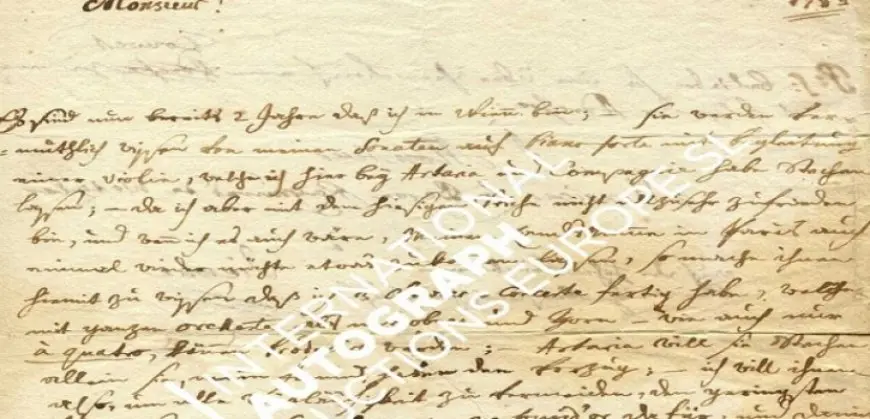 Monsieur!
Es sind nun bereits 2 Jahre daß ich in Wienn bin; — sie werden ver-
-muthlich wissen von meinen Sonaten auf Piano forte mit begleitung
einer violin, welche ich hier bey Artaria und Compagnie habe stechen
lassen; — da ich aber mit dem hiesigen stiche nicht allzusehr zufrieden
bin, und wenn ich es auch wäre, meinem landsManne in Paris auch
einmal wieder möchte etwas zukommen lassen, so mache ihnen
hiemit zu wissen daß ich 3 Clavier Concerte fertig habe, welche
mit ganzen orchestre, als mit oboen und Horn — wie auch nur
à quatro können werden; — Artaria will sie stechen
allein sie, mein freund haben den vorzug; — ich will ihnen
also, um alle weitläufigkeit zu vermeiden, den geringsten
INTERNATIONAL
AUTOGRAPH
AUCTIONS EUROPE SL